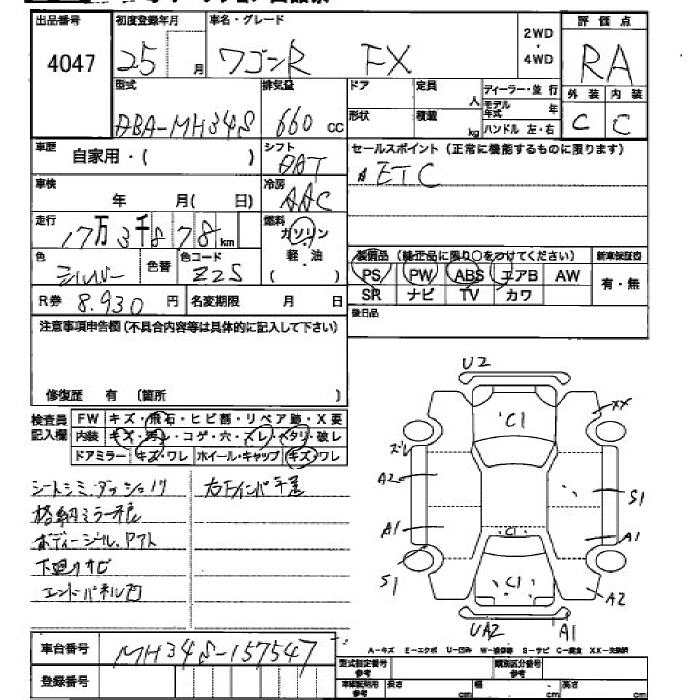 出品番号 4047
初度登録年月 25 月
車名・グレード ワゴンR FX
2WD・4WD
評価点 RA
型式 DBA-MH34S
排気量 660 cc
ドア 形状
定員 人
積載 kg
ディーラー・並行
モデル年式 年
ハンドル 左・右
外装 C 内装 C
車歴 自家用・( )
シフト DAT
セールスポイント (正常に機能するものに限ります)
ETC
車検 年 月( 日)
冷房 AAC
走行 17万3千878km
燃料 ガソリン 軽・油 ( )
色 シルバー 色替
色コード Z2S
装備品 (純正品に限り〇をつけてください) 新車保証書
PS PW ABS エアB AW 有・無
SR ナビ TV カワ
R券 8.930 円
名変期限 月 日
後日品
注意事項申告欄(不具合内容等は具体的に記入して下さい)
修復歴 有 (箇所 )
検査員記入欄
FW キズ・飛石・ヒビ割・リペア跡・X要
内装 キズ・汚レ・コゲ・穴・スレ・ヘタリ・破レ
ドアミラー キズ・ワレ ホイール・キャップ キズ・ワレ
シートシミ、ダッシュ
格納ミラー
ボディーシール
下廻りサビ
エンドパネル凹
U2
C1
XX
ズレ
A2
S1
A1
C1
A1
S1
C1
A2
UA2 A1
車台番号 MH34S-157547
登録番号
A-キズ E-エクボ U-凹み W-補修等 S-サビ C-腐食 XX-交換済
型式指定番号 参考
類別区分番号 参考
車検証記載 参考 長さ cm 幅 cm 高さ cm